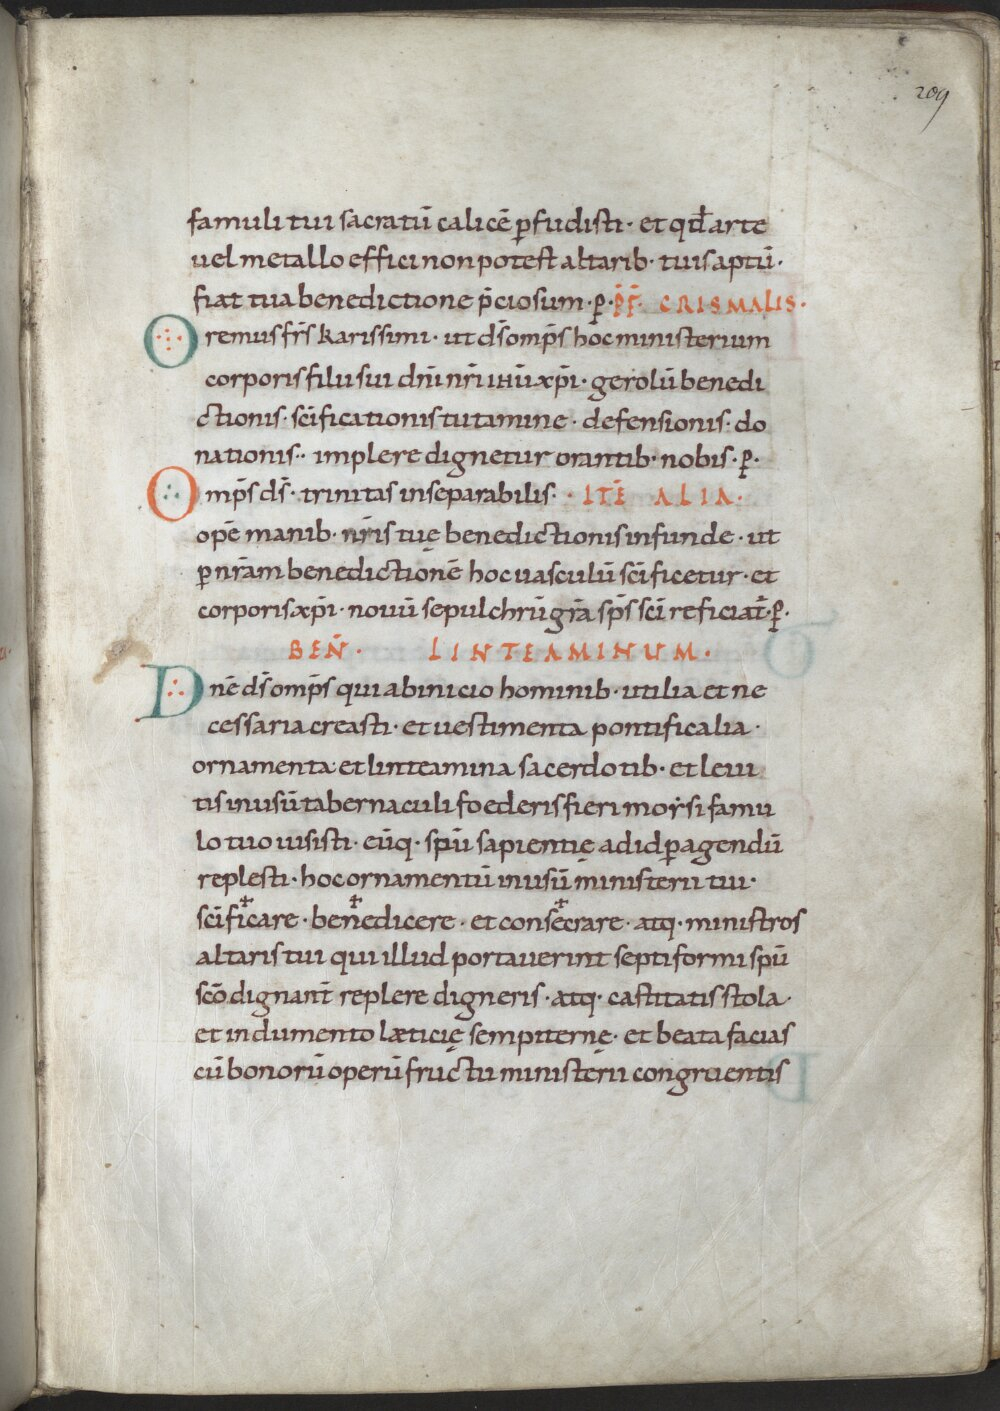 209
famuli tui sacratū calicē ꝑfudisti· et qd̄ arte
uel metallo effici non potest altarib· tuis aptū·
fiat tua benedictione p̄ciosum·ꝑ· P̄F̄· CRISMALIS·
Oremus fr̄s karissimi· ut ds̄ omp̄s hoc ministerium
corporis filii sui dn̄i nr̄i ihū xp̄i· gerolū benedi
ctionis· sc̄ificationis tutamine· defensionis· do
nationis·· implere dignetur orantib· nobis·ꝑ·
Omp̄s ds̄· trinitas inseparabilis· · ITĒ ALIA·
opē manib· nr̄is tuę benedictionis infunde· ut
ꝑ nr̄am benedictionē hoc uasculū sc̄ificetur· et
corporis xp̄i· nouū sepulchrū gr̄a sp̄s sc̄i reficiat̄·ꝑ·
BEN̄· LINTEAMINUM·
Dnē ds̄ omp̄s qui ab inicio hominib· utilia et ne
cessaria creasti· et uestimenta pontificalia·
ornamenta et linteamina sacerdotib· et leui
tis in usū tabernaculi foederis fieri moẏsi famu
lo tuo iusisti· eūq· spū sapientię ad id ꝑagendū
replesti· hoc ornamentū in usū ministerii tui·
sc̄ifi✝care· ben✝edicere· et conse✝crare· atq· ministros
altaris tui qui illud portauerint septiformi spū
sc̄o dignant̄ replere digneris· atq· castitatis stola·
et indumento læticię sempiternę· et beata facias
cū bonorū operū fructu ministerii congruentis